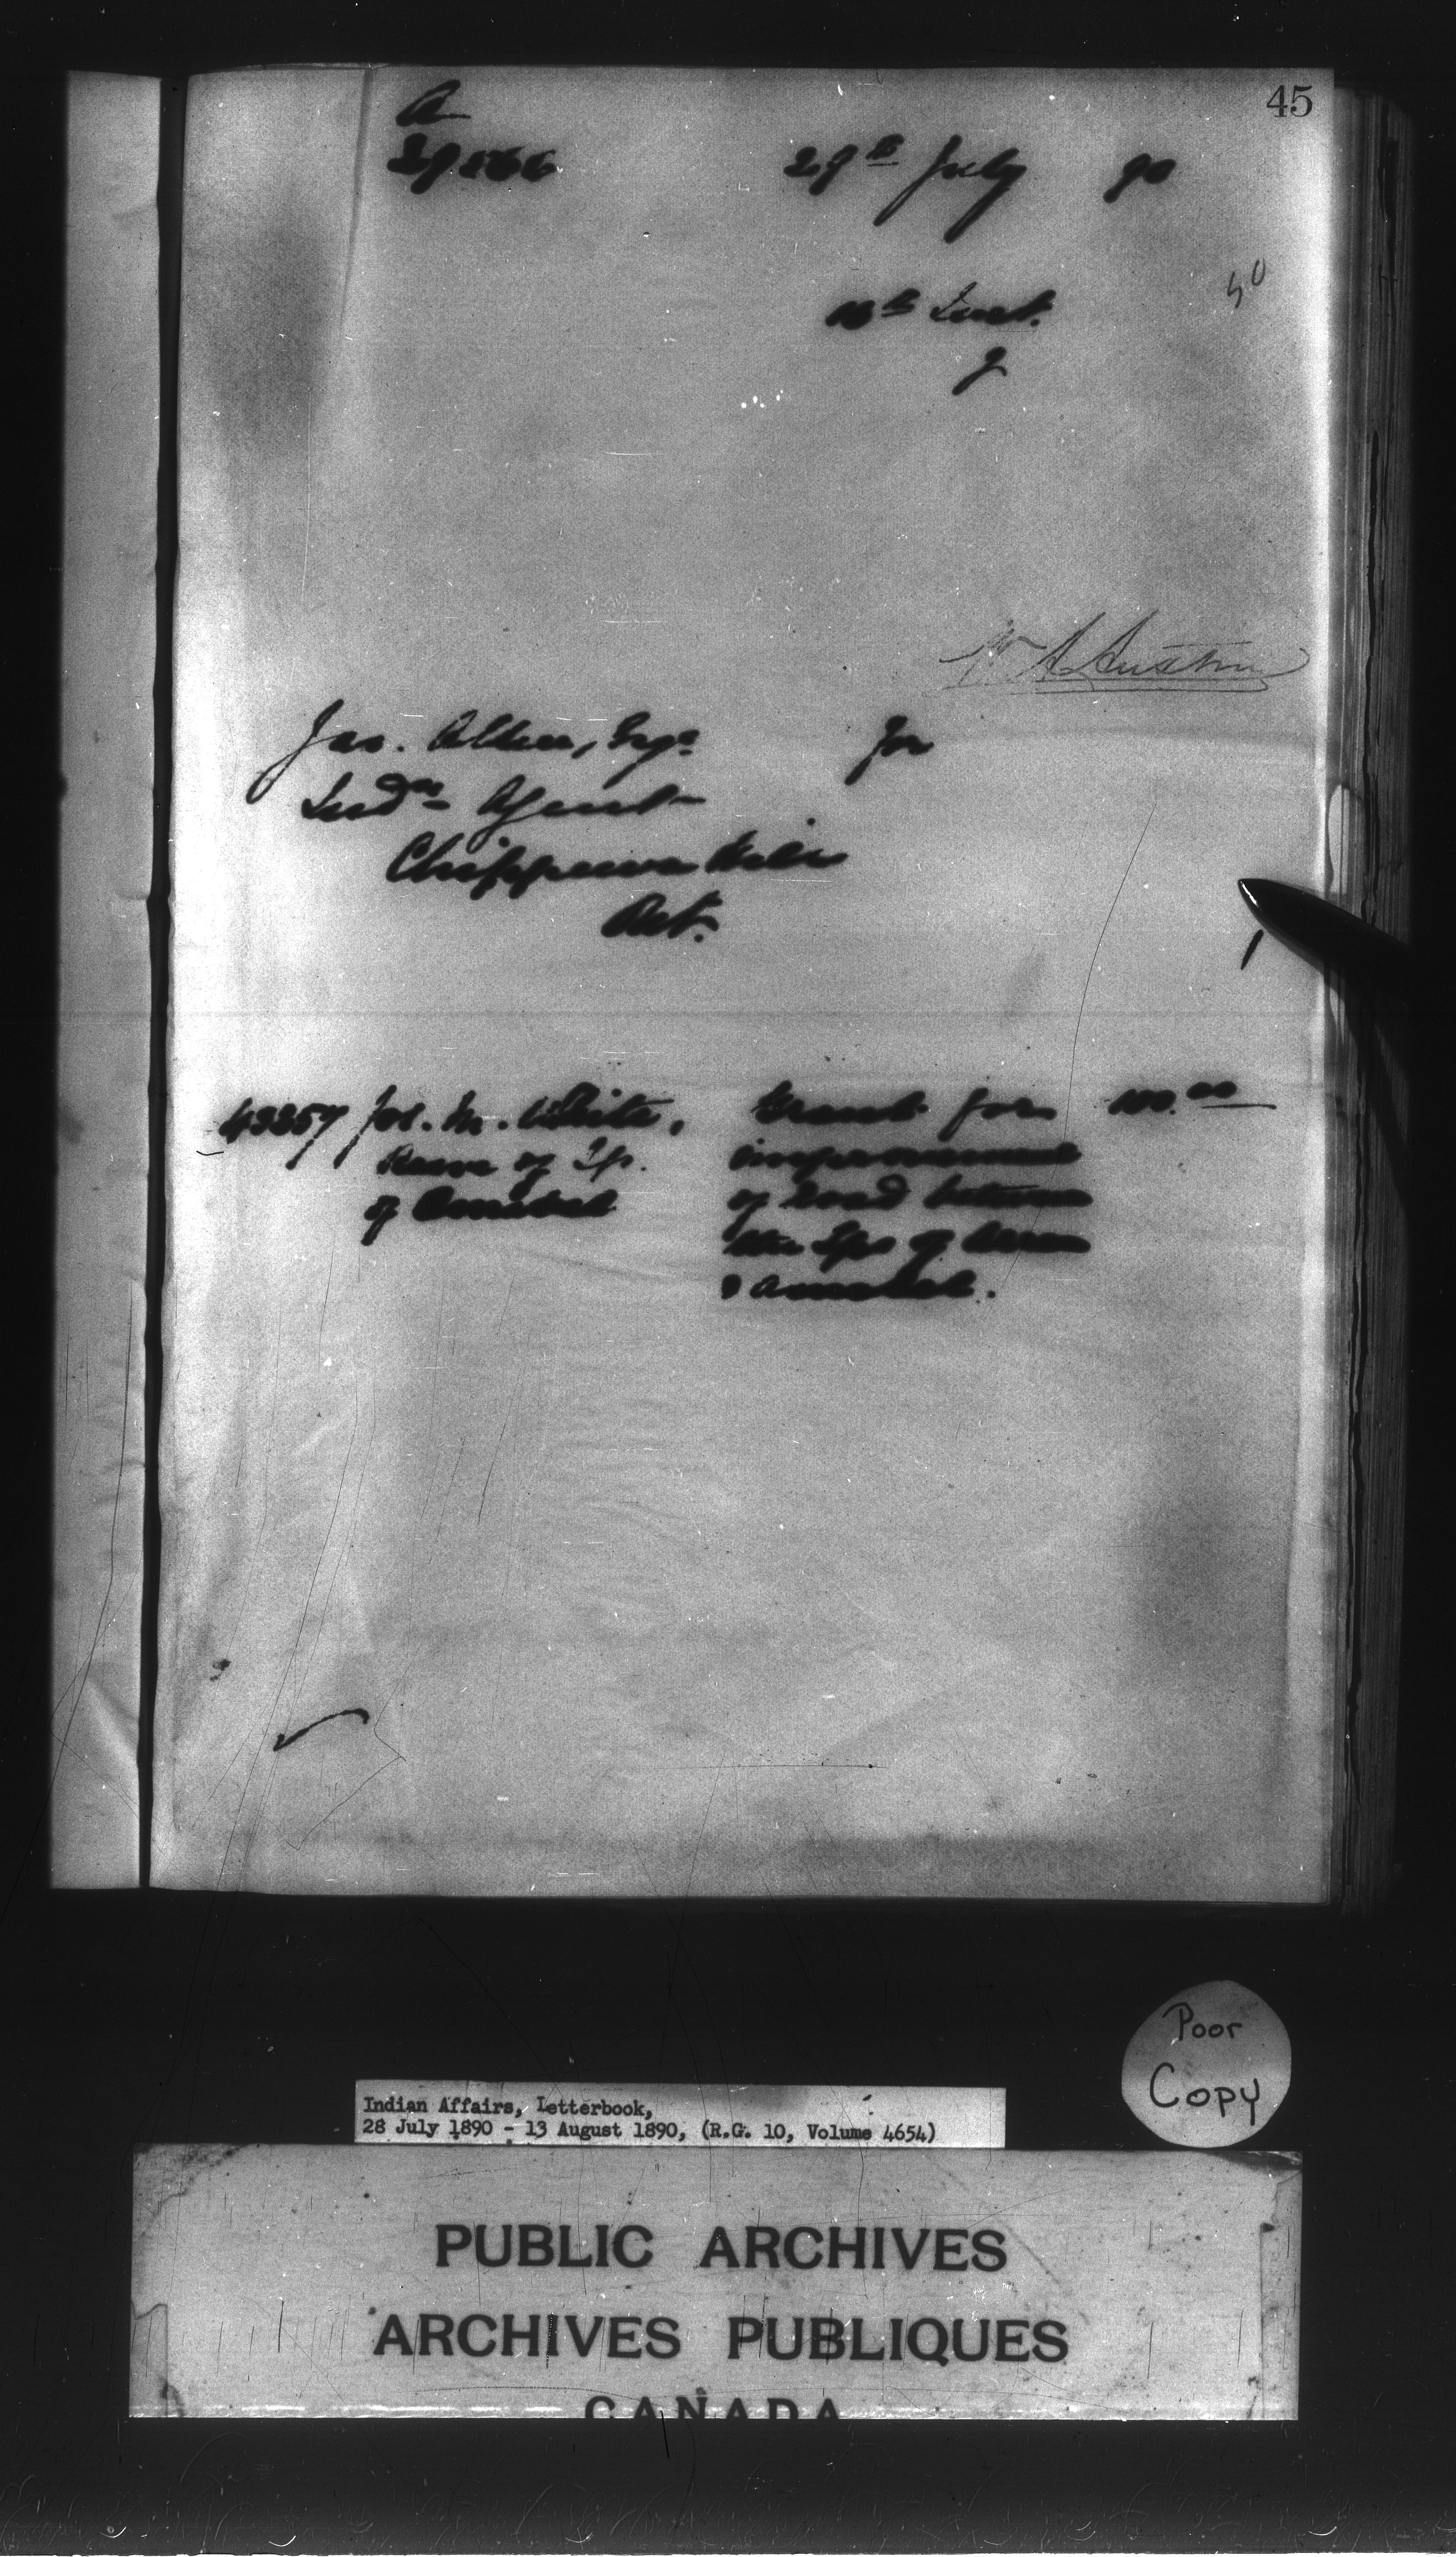 45
A
29th July 90
16th Inst.
W A Austin
Jas. Allen, Esqr for
Indn Agent
Chippewa Hill
Ont.
43257 Jos. M. White, Grant for 100.00
Reeve of Tp. improvement
of Amabel of road between
the Tps of Arran
& Amabel.
Poor
Copy
Indian Affairs, Letterbook,
28 July 1890 - 13 August 1890, (R.G. 10, Volume 4654)
PUBLIC ARCHIVES
ARCHIVES PUBLIQUES
CANADA